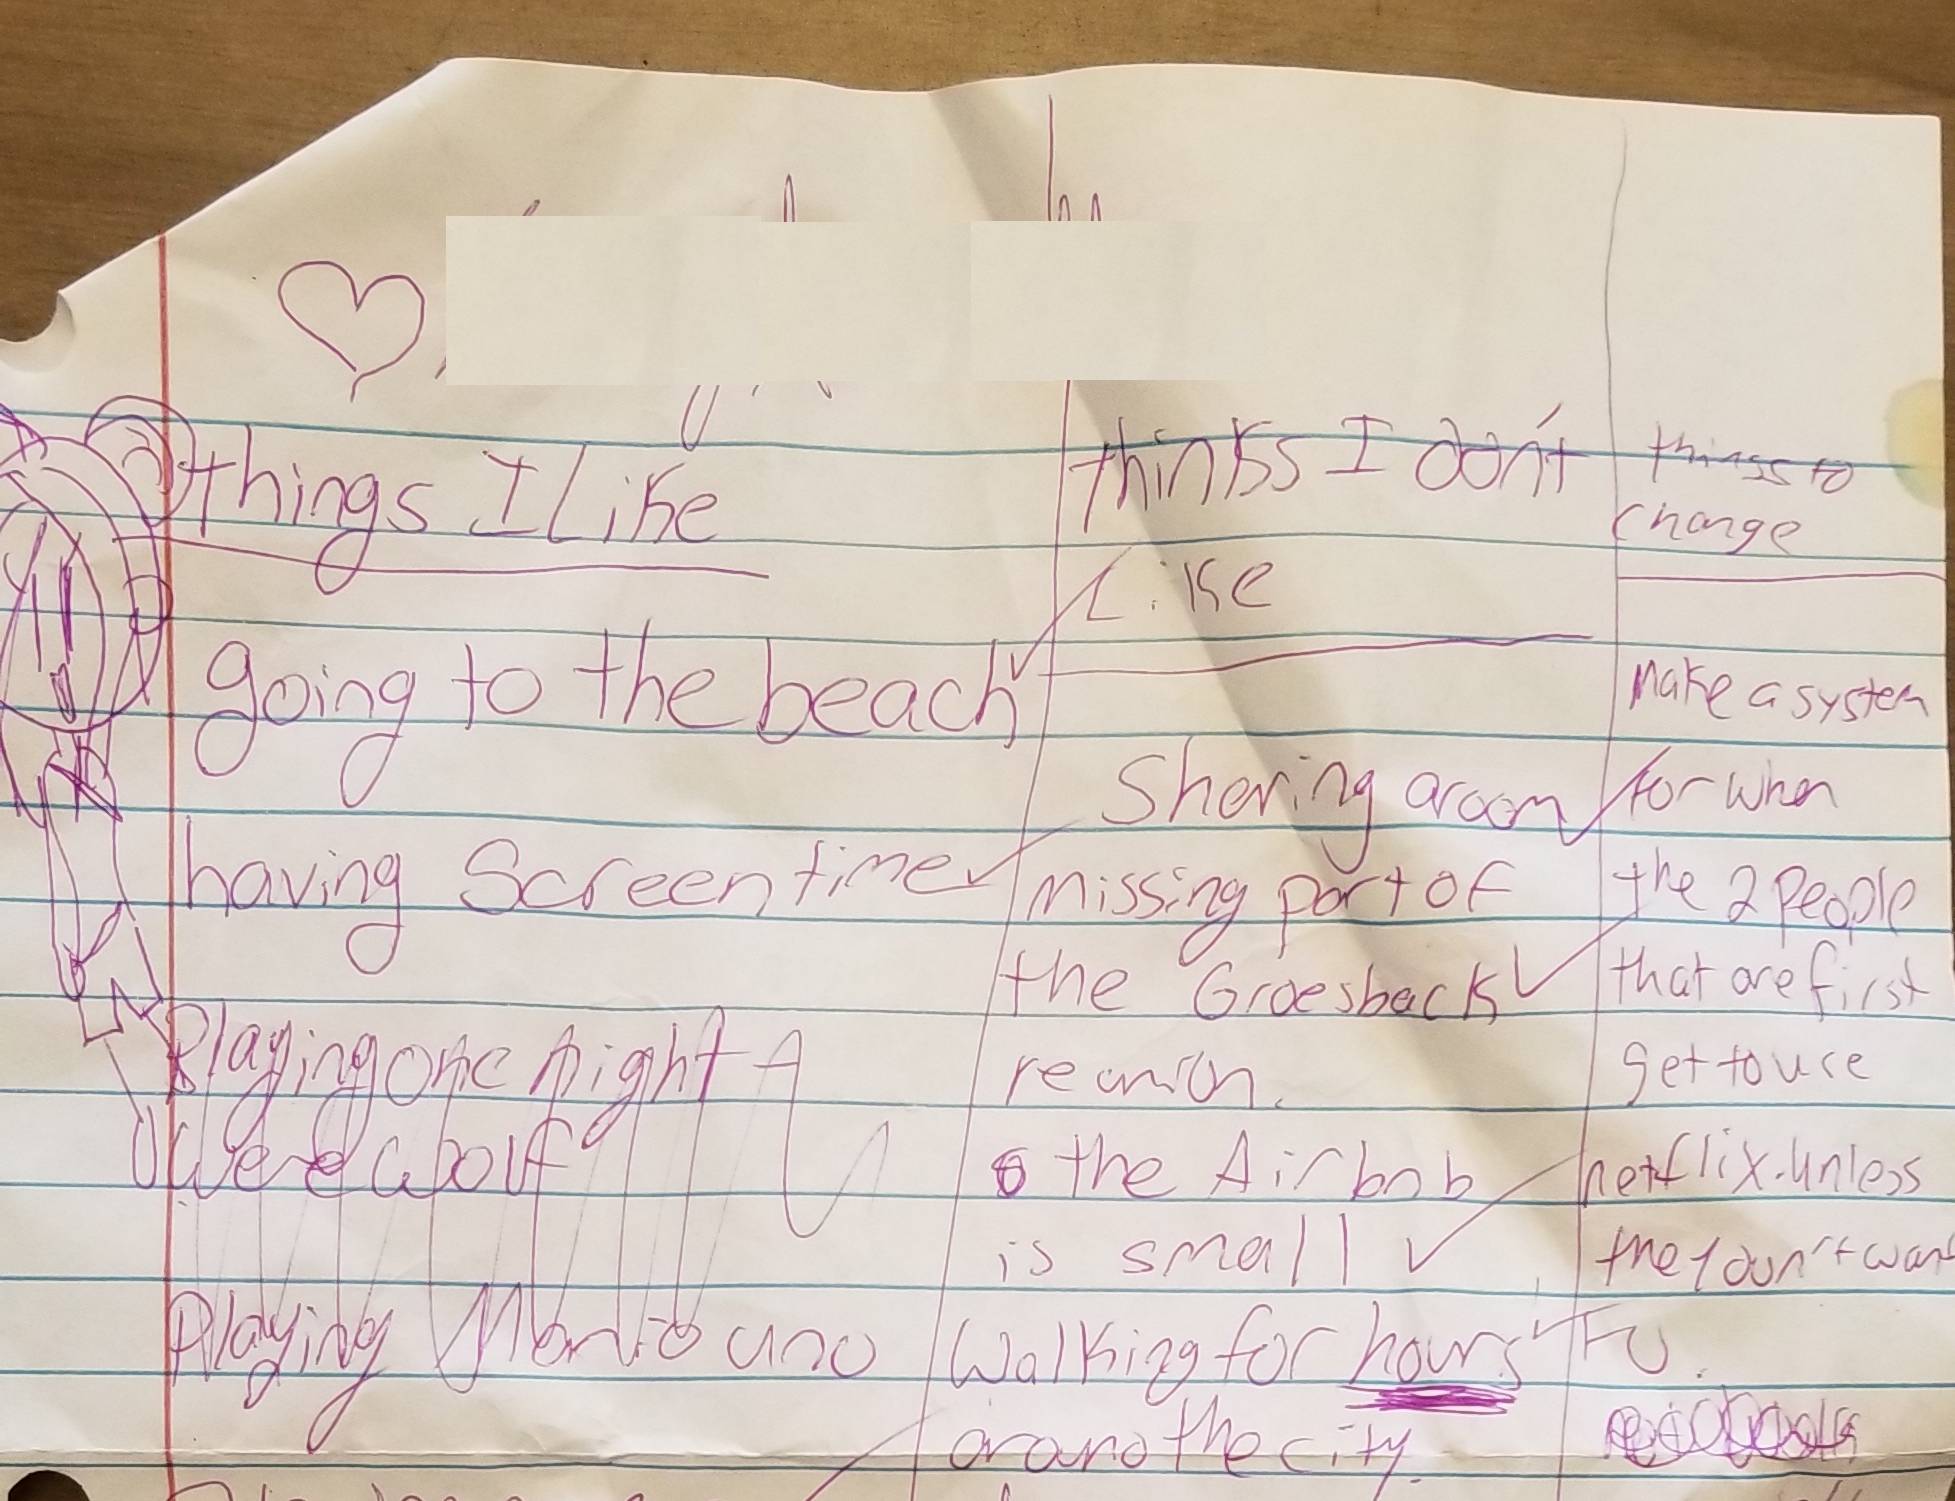 things I Like
going to the beach
having Screen time
Playing one night
Werewolf
Playing Mario uno
things I don't
Like
Sharing a room
missing part of
the Groesback
reunion.
the Airbnb
is small
Walking for hours
around the city.
things to
change
Make a system
for when
the 2 People
that are first
get to use
netflix. unless
they don't want
To.